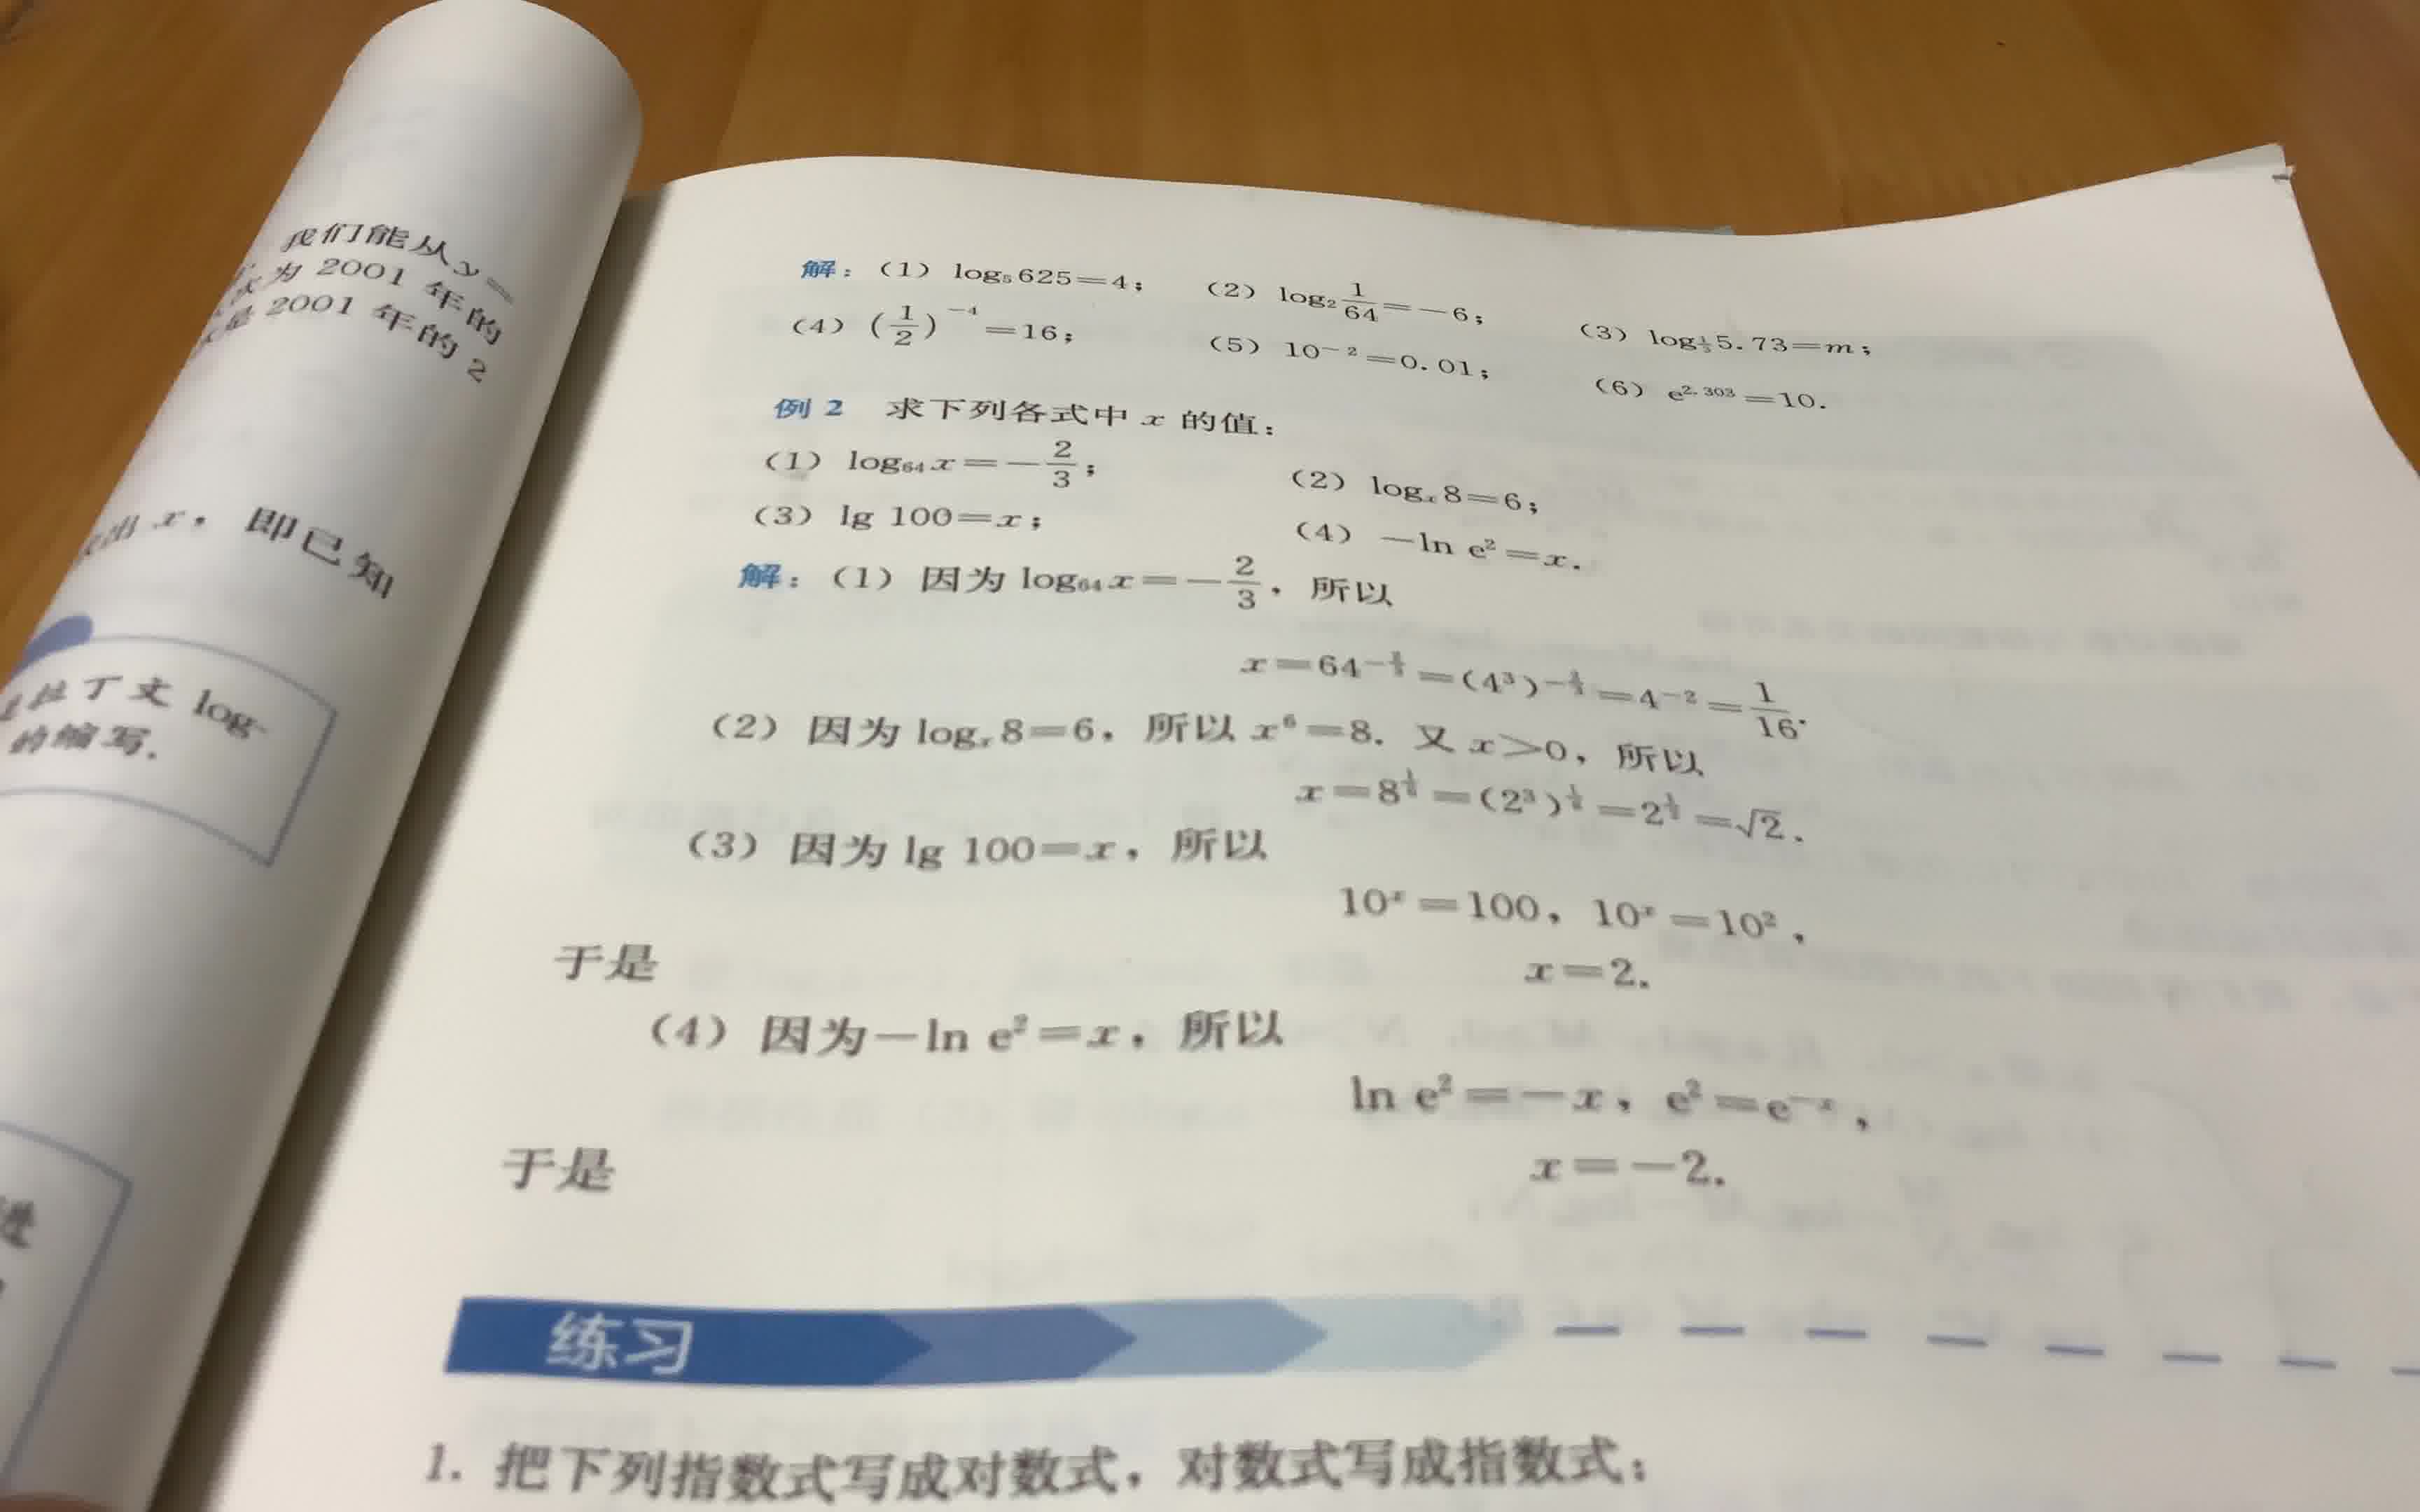 我们能从 y=
为 2001 年的
是 2001 年的 2
出 x，即已知
拉丁文 log-
的缩写.
进
解：（1）log₅625=4；（2）log₂1/64=-6；（3）log_{1/3}5.73=m；
（4）(1/2)^{-4}=16；（5）10^{-2}=0.01；（6）e^{2.303}=10.
例 2 求下列各式中 x 的值：
（1）log₆₄x=-2/3；（2）logₓ8=6；
（3）lg 100=x；（4）-ln e²=x.
解：（1）因为 log₆₄x=-2/3，所以
x=64^{-2/3}=(4³)^{-2/3}=4^{-2}=1/16.
（2）因为 logₓ8=6，所以 x⁶=8. 又 x>0，所以
x=8^{1/6}=(2³)^{1/6}=2^{1/2}=√2.
（3）因为 lg 100=x，所以
10ˣ=100，10ˣ=10²，
于是 x=2.
（4）因为-ln e²=x，所以
ln e²=-x，e²=e^{-x}，
于是 x=-2.
练习
1. 把下列指数式写成对数式，对数式写成指数式：